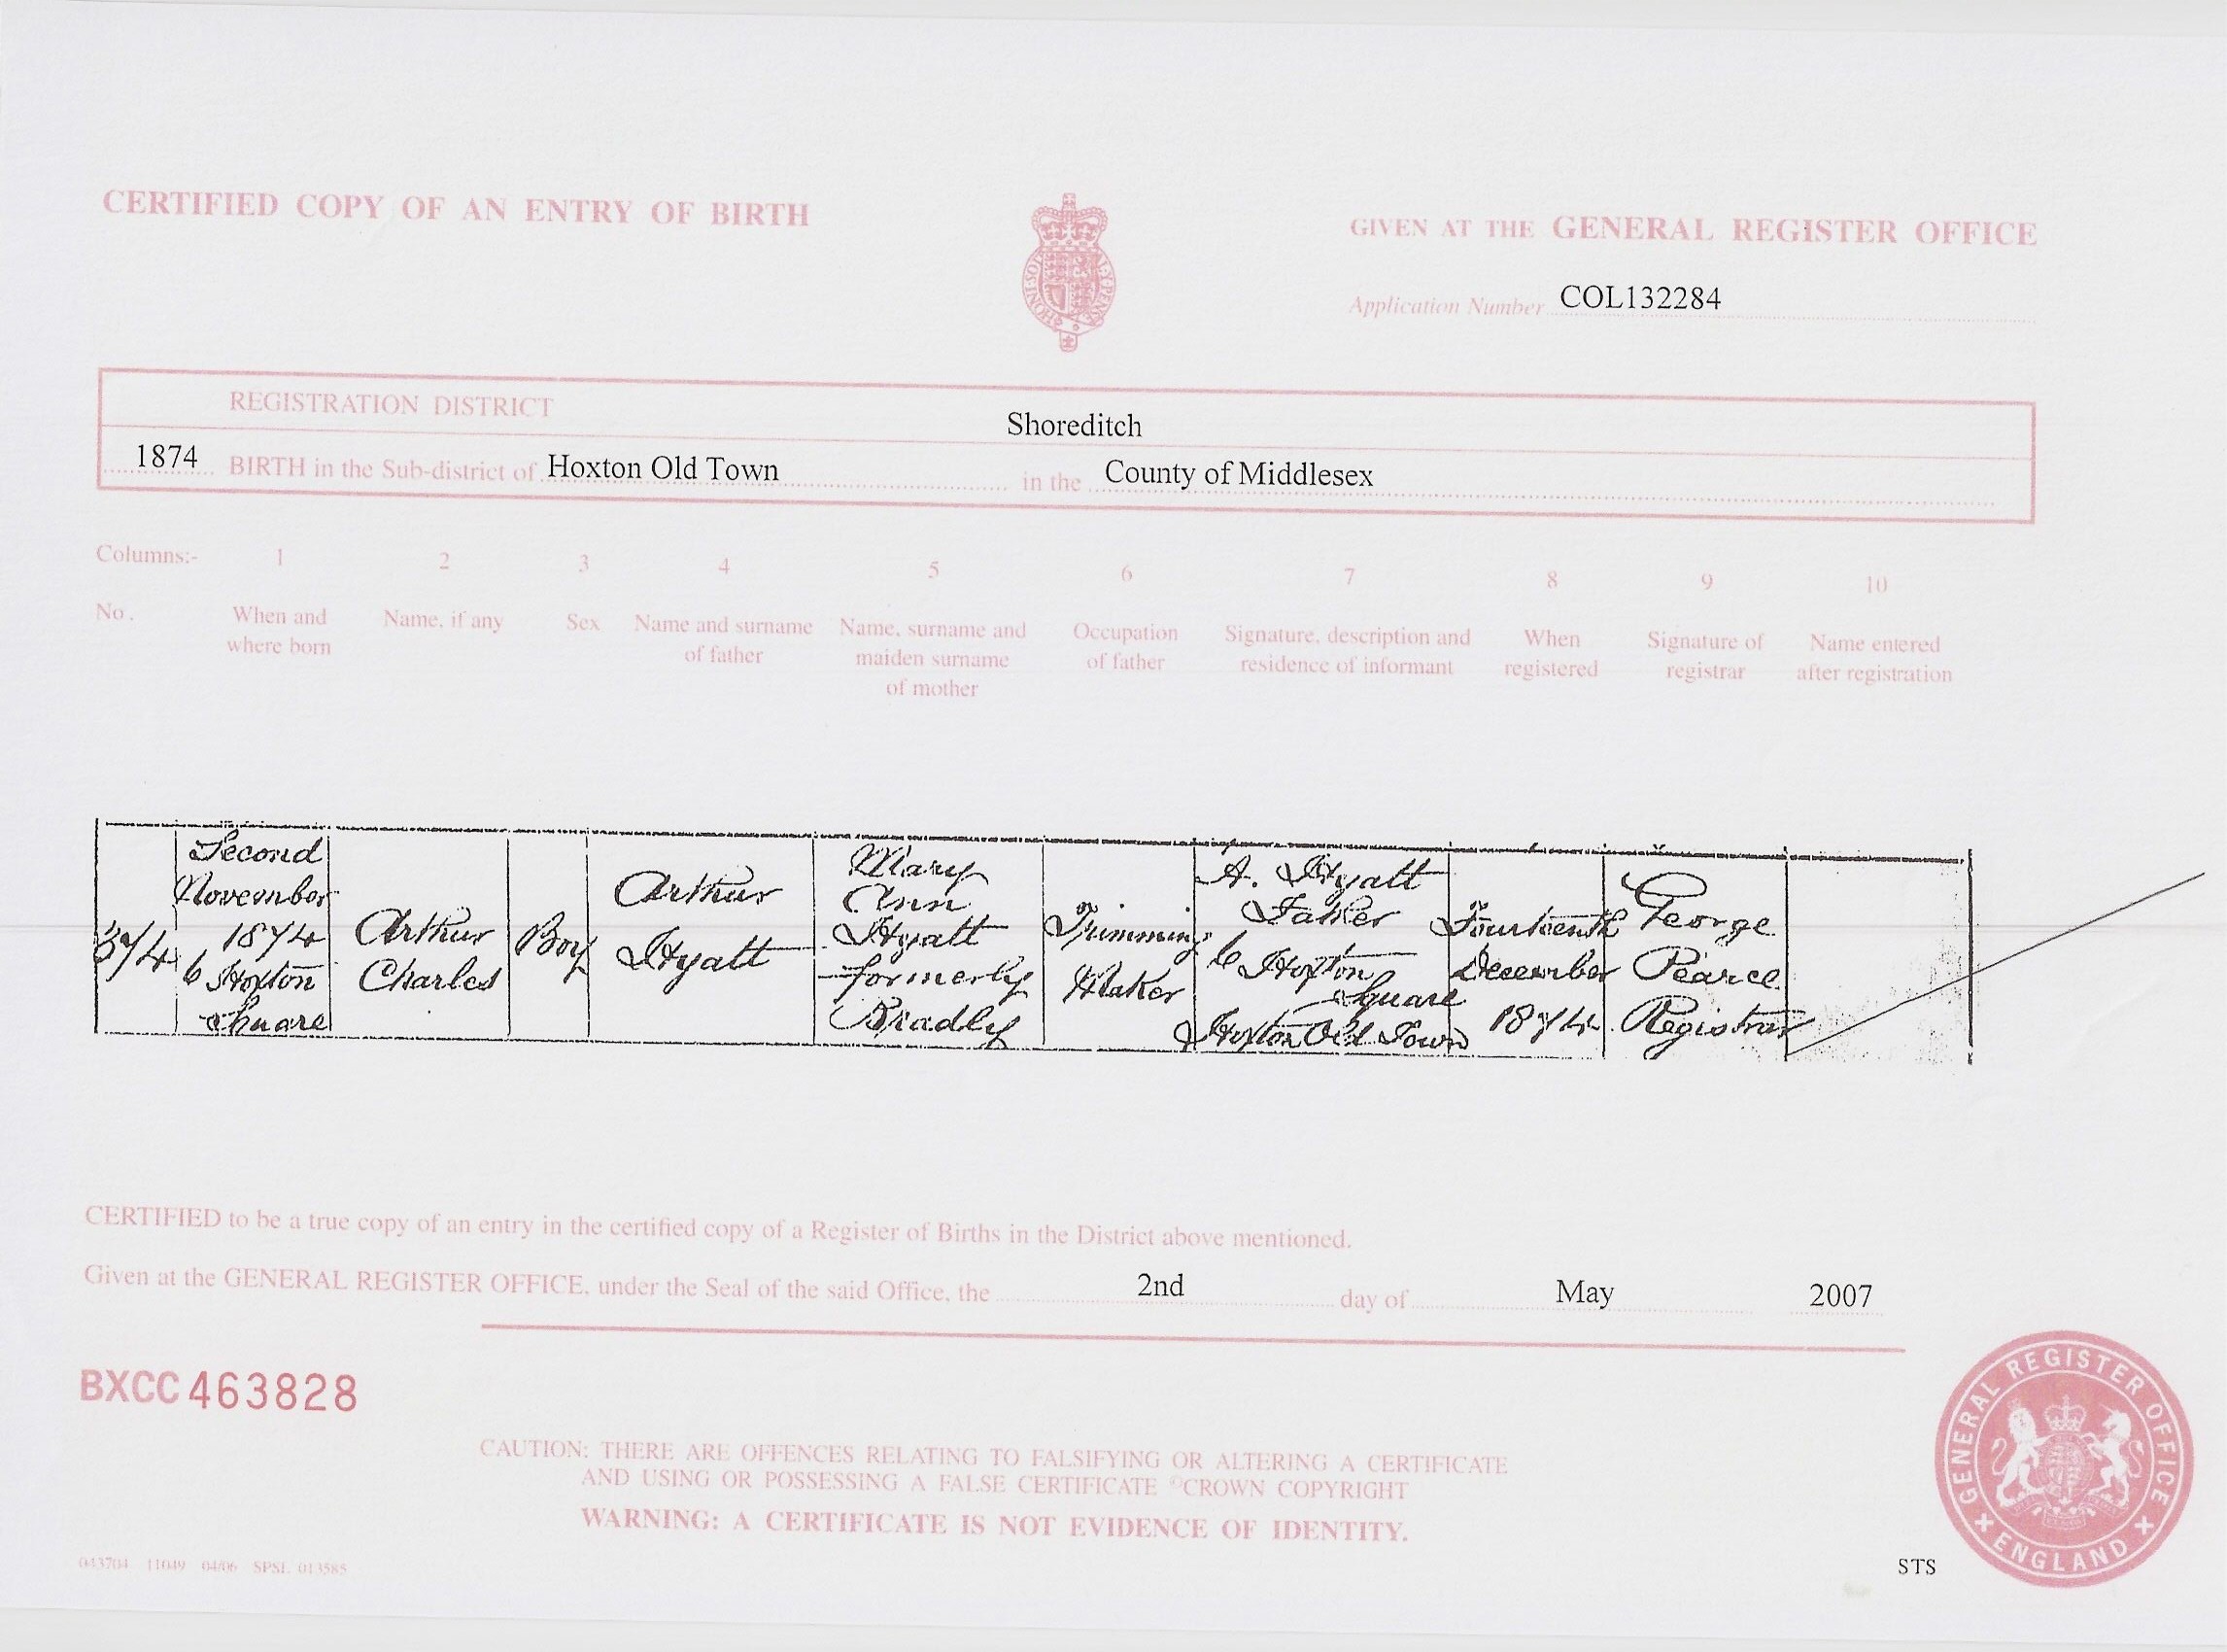 CERTIFIED COPY OF AN ENTRY OF BIRTH
GIVEN AT THE GENERAL REGISTER OFFICE
Application Number COL132284
REGISTRATION DISTRICT Shoreditch
1874 BIRTH in the Sub-district of Hoxton Old Town in the County of Middlesex
Columns:- 1 2 3 4 5 6 7 8 9 10
No.
When and
where born
Name, if any
Sex
Name and surname
of father
Name, surname and
maiden surname
of mother
Occupation
of father
Signature, description and
residence of informant
When
registered
Signature of
registrar
Name entered
after registration
374
Second
November
1874
6 Hoxton
Square
Arthur
Charles
Boy
Arthur
Hyatt
Mary
Ann
Hyatt
formerly
Bradly
Trimming
Maker
A. Hyatt
Father
6 Hoxton
Square
Hoxton Old Town
Fourteenth
December
1874
George
Pearce
Registrar
CERTIFIED to be a true copy of an entry in the certified copy of a Register of Births in the District above mentioned.
Given at the GENERAL REGISTER OFFICE, under the Seal of the said Office, the 2nd day of May 2007
BXCC 463828
CAUTION: THERE ARE OFFENCES RELATING TO FALSIFYING OR ALTERING A CERTIFICATE
AND USING OR POSSESSING A FALSE CERTIFICATE ©CROWN COPYRIGHT
WARNING: A CERTIFICATE IS NOT EVIDENCE OF IDENTITY.
043704 11049 04/06 SPSL 013585
STS
GENERAL REGISTER OFFICE
ENGLAND